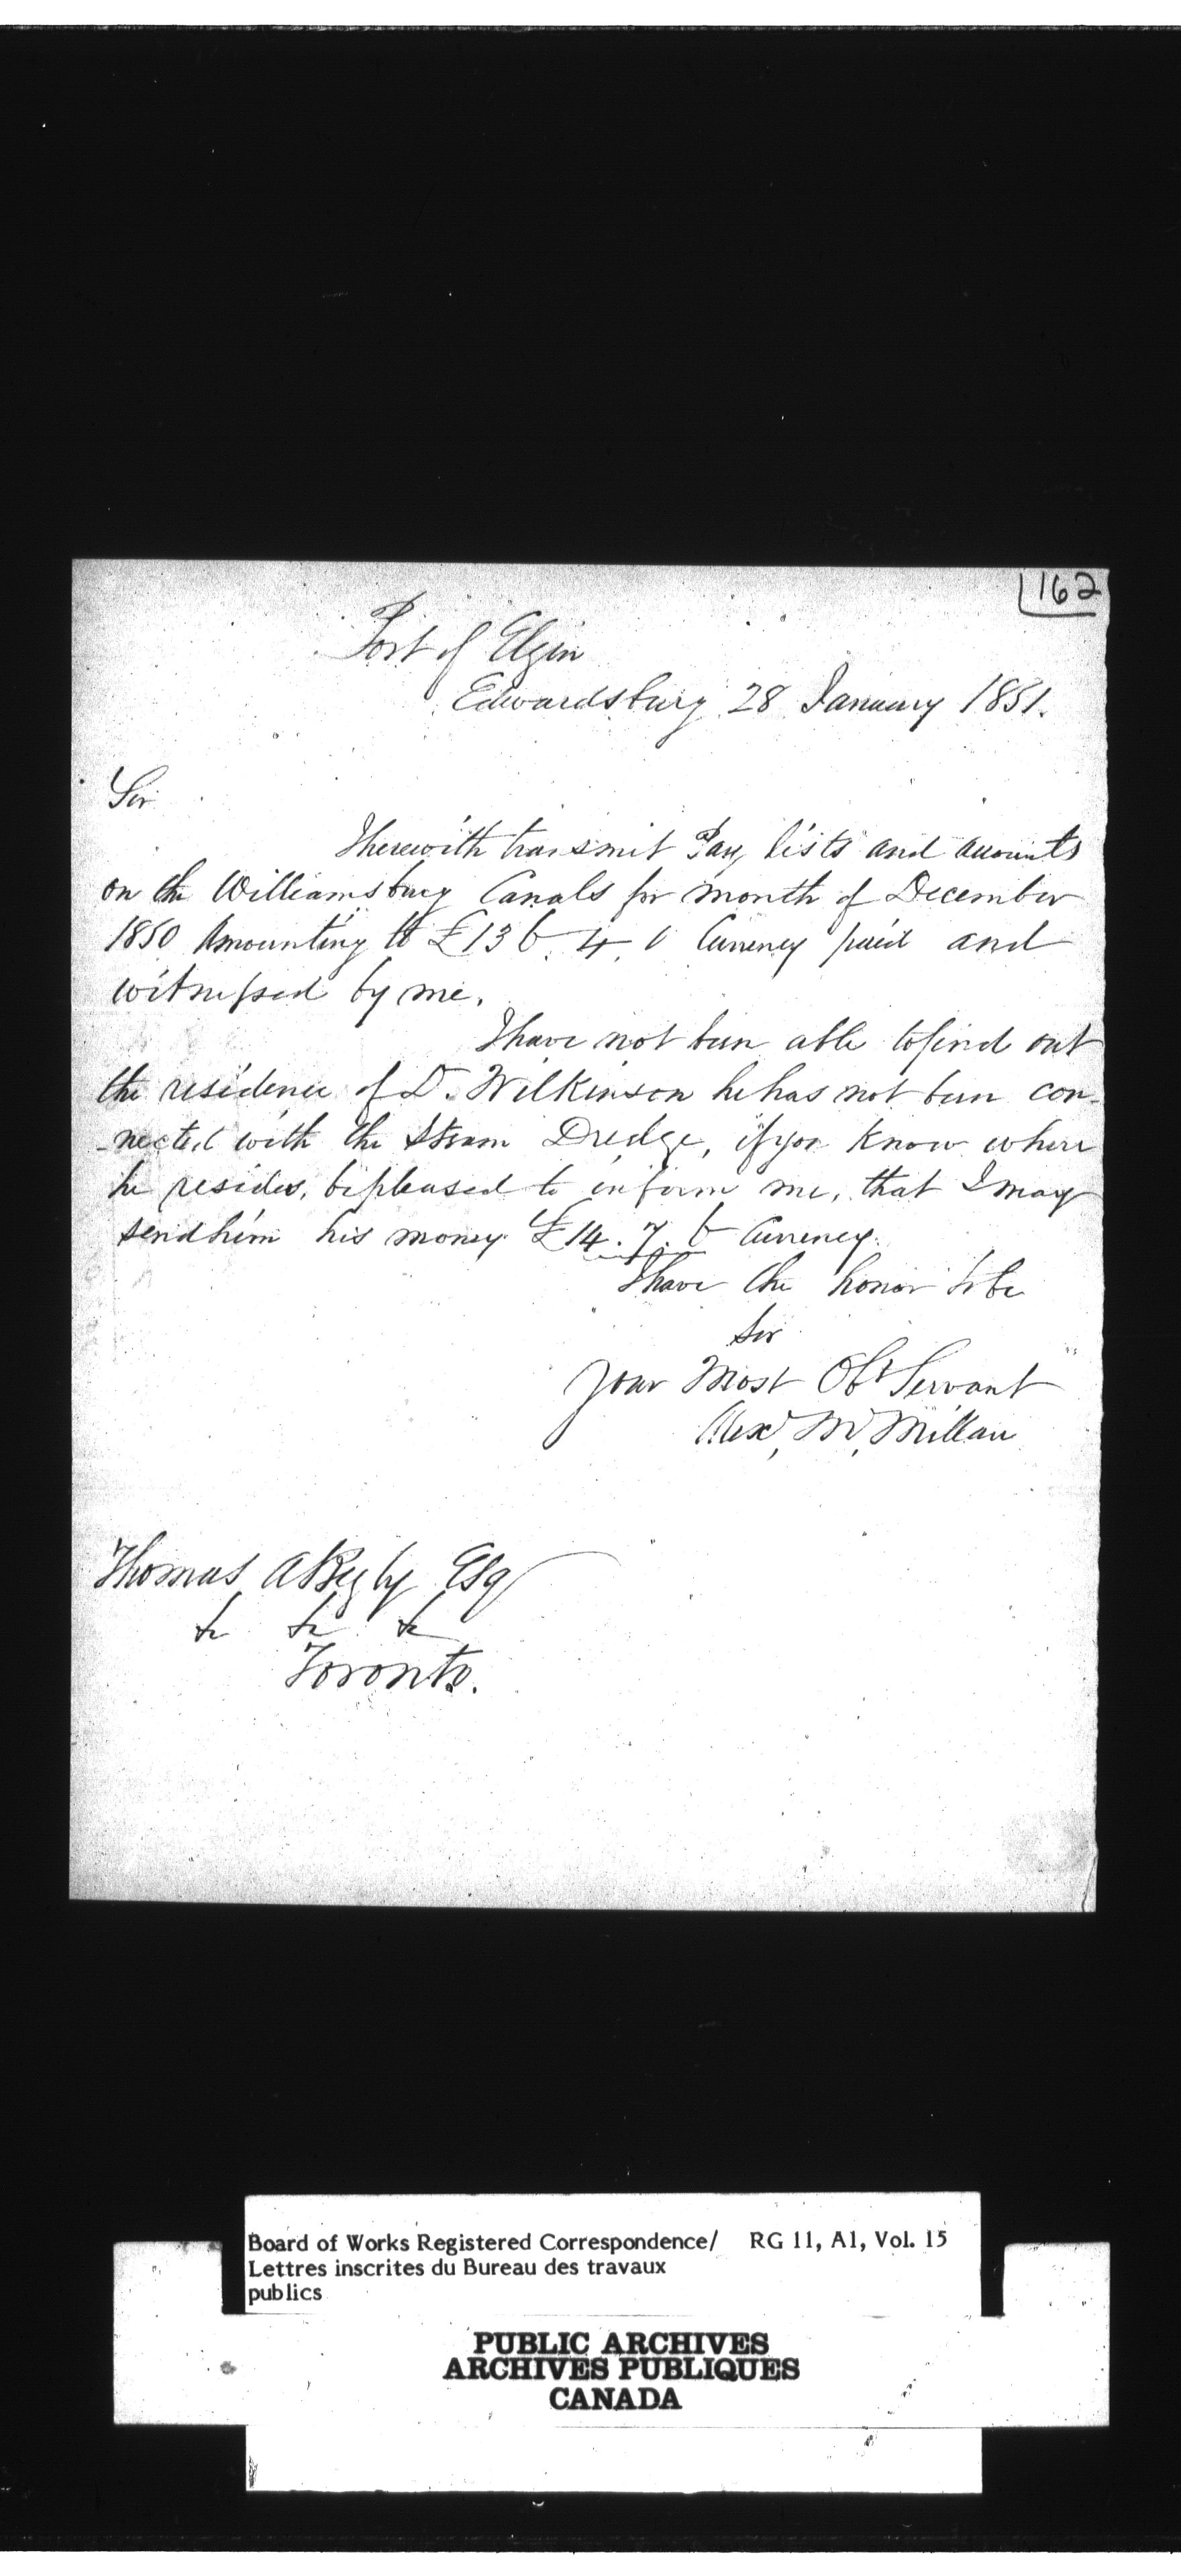 162
Port of Elgin
Edwardsburg 28 January 1851.
Sir
I herewith transmit Pay lists and accounts
on the Williamsburg Canals for month of December
1850 Amounting to £136. 4. 1 Currency paid and
witnessed by me.
I have not been able to find out
the residence of D. Wilkinson he has not been con-
-nected with the Steam Dredge, if you know where
he resides, be pleased to inform me, that I may
send him his money £14. 7. 6 Currency.
I have the honor to be
Sir
Your Most Obt Servant
Alexr McMillan
Thomas A Begly Esq
&c &c &c
Toronto.
Board of Works Registered Correspondence/ RG 11, A1, Vol. 15
Lettres inscrites du Bureau des travaux
publics
PUBLIC ARCHIVES
ARCHIVES PUBLIQUES
CANADA